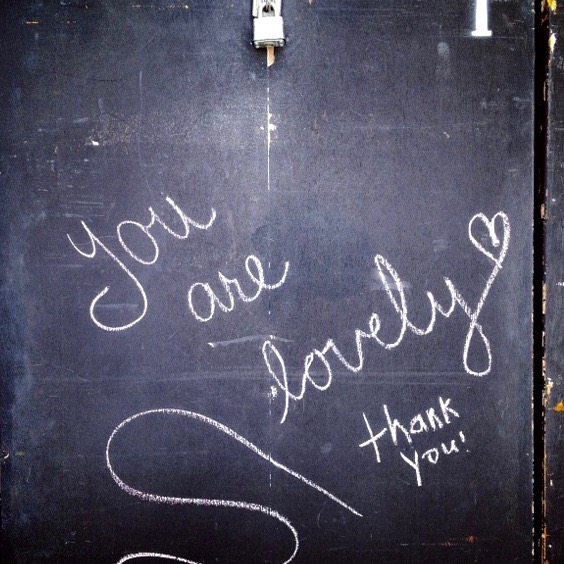 you
are
lovely
thank
you!